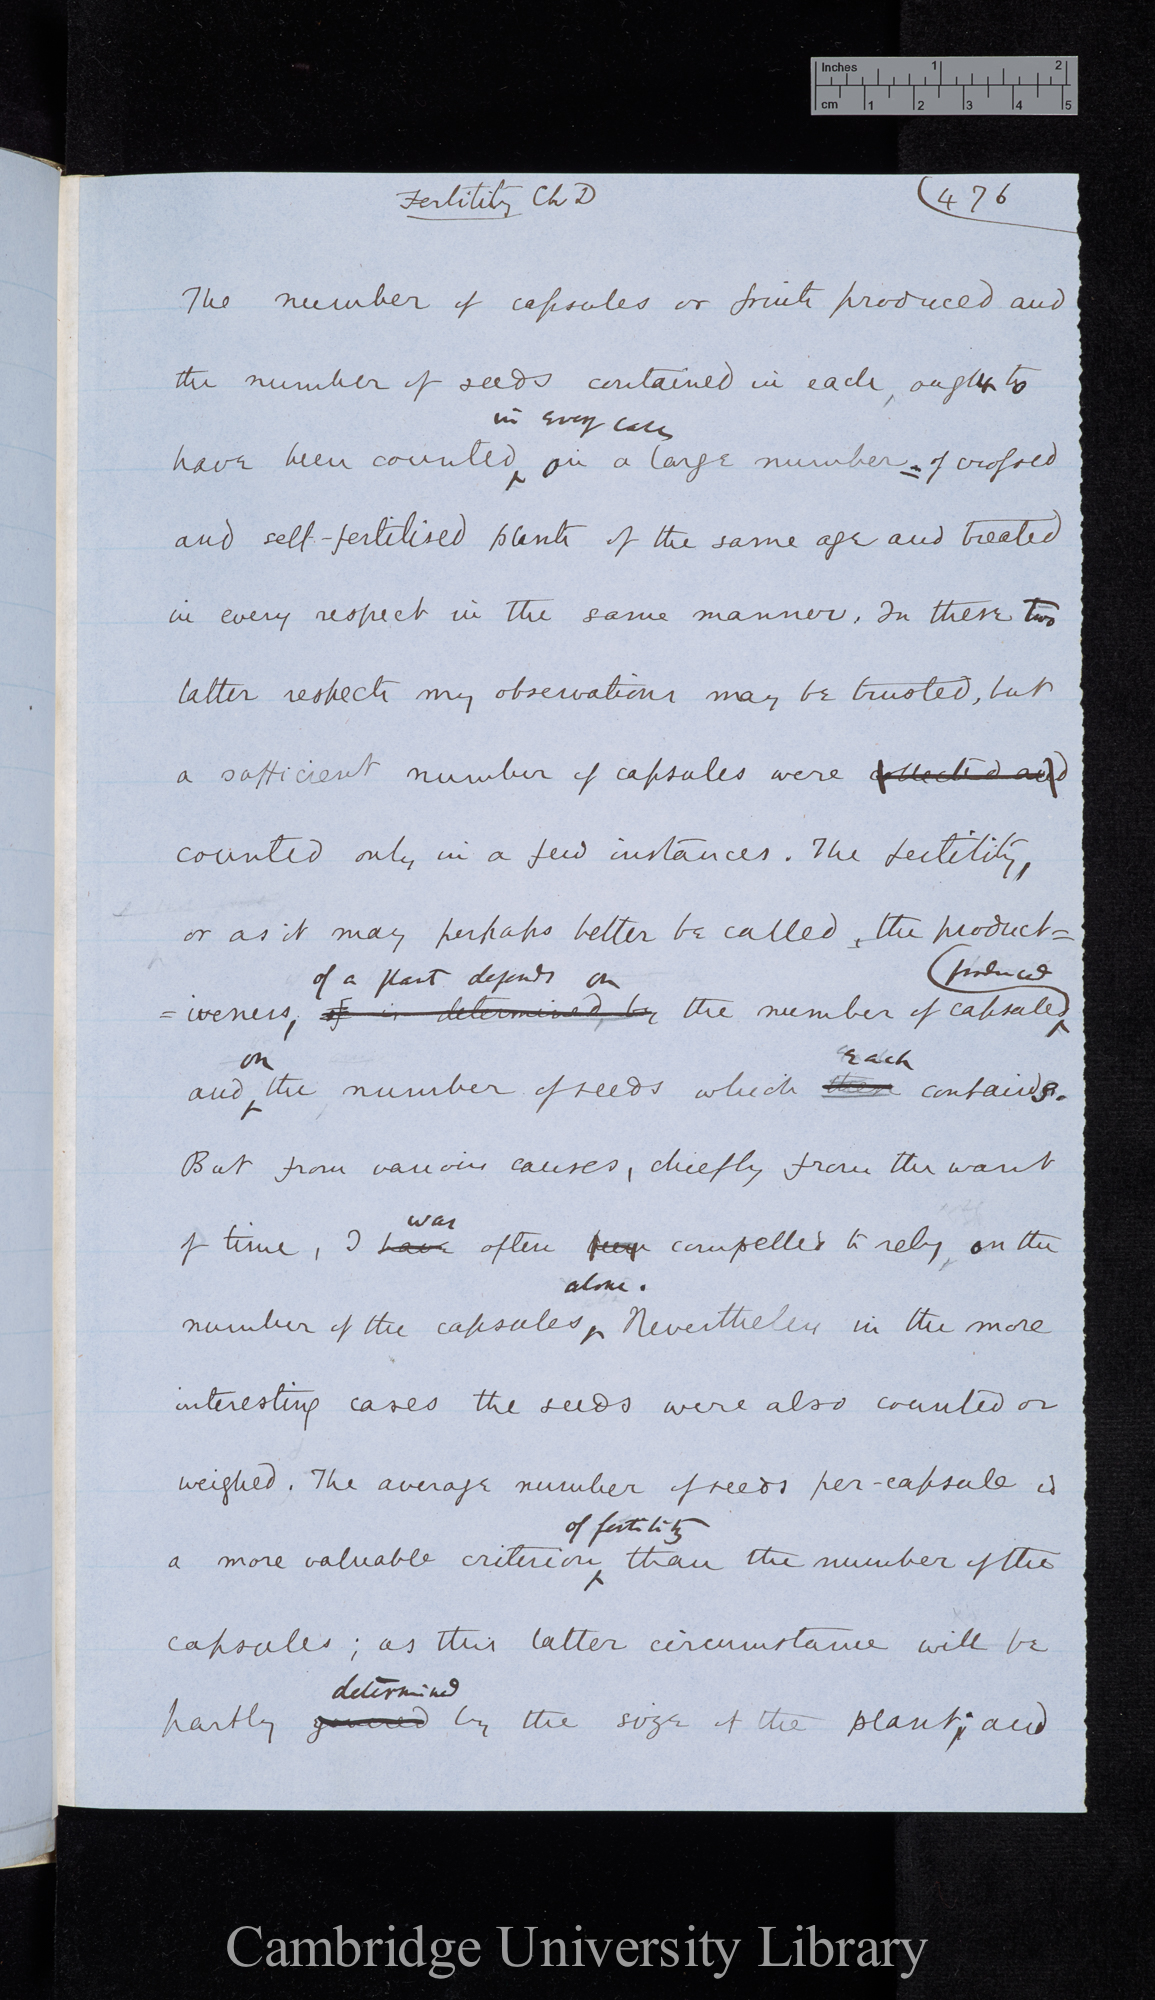 Inches 1 2
cm 1 2 3 4 5
Fertility Ch D
476
The number of capsules or fruits produced and
the number of seeds contained in each, ought to
in every case
have been counted, on a large number of crossed
and self-fertilised plants of the same age and treated
in every respect in the same manner. In these two
latter respects my observations may be trusted, but
a sufficient number of capsules were collected and
counted only in a few instances. The fertility,
or as it may perhaps better be called, the product=
of a plant depends on
produced
=iveness, is determined, by the number of capsules
on
each
and the number of seeds which these contains.
But from various causes, chiefly from the want
was
of time, I have often been compelled to rely, on the
alone.
number of the capsules, Nevertheless in the more
interesting cases the seeds were also counted or
weighed. The average number of seeds per-capsule is
of fertility
a more valuable criterion, than the number of the
capsules; as this latter circumstance will be
determined
partly governed by the size of the plant; and
Cambridge University Library